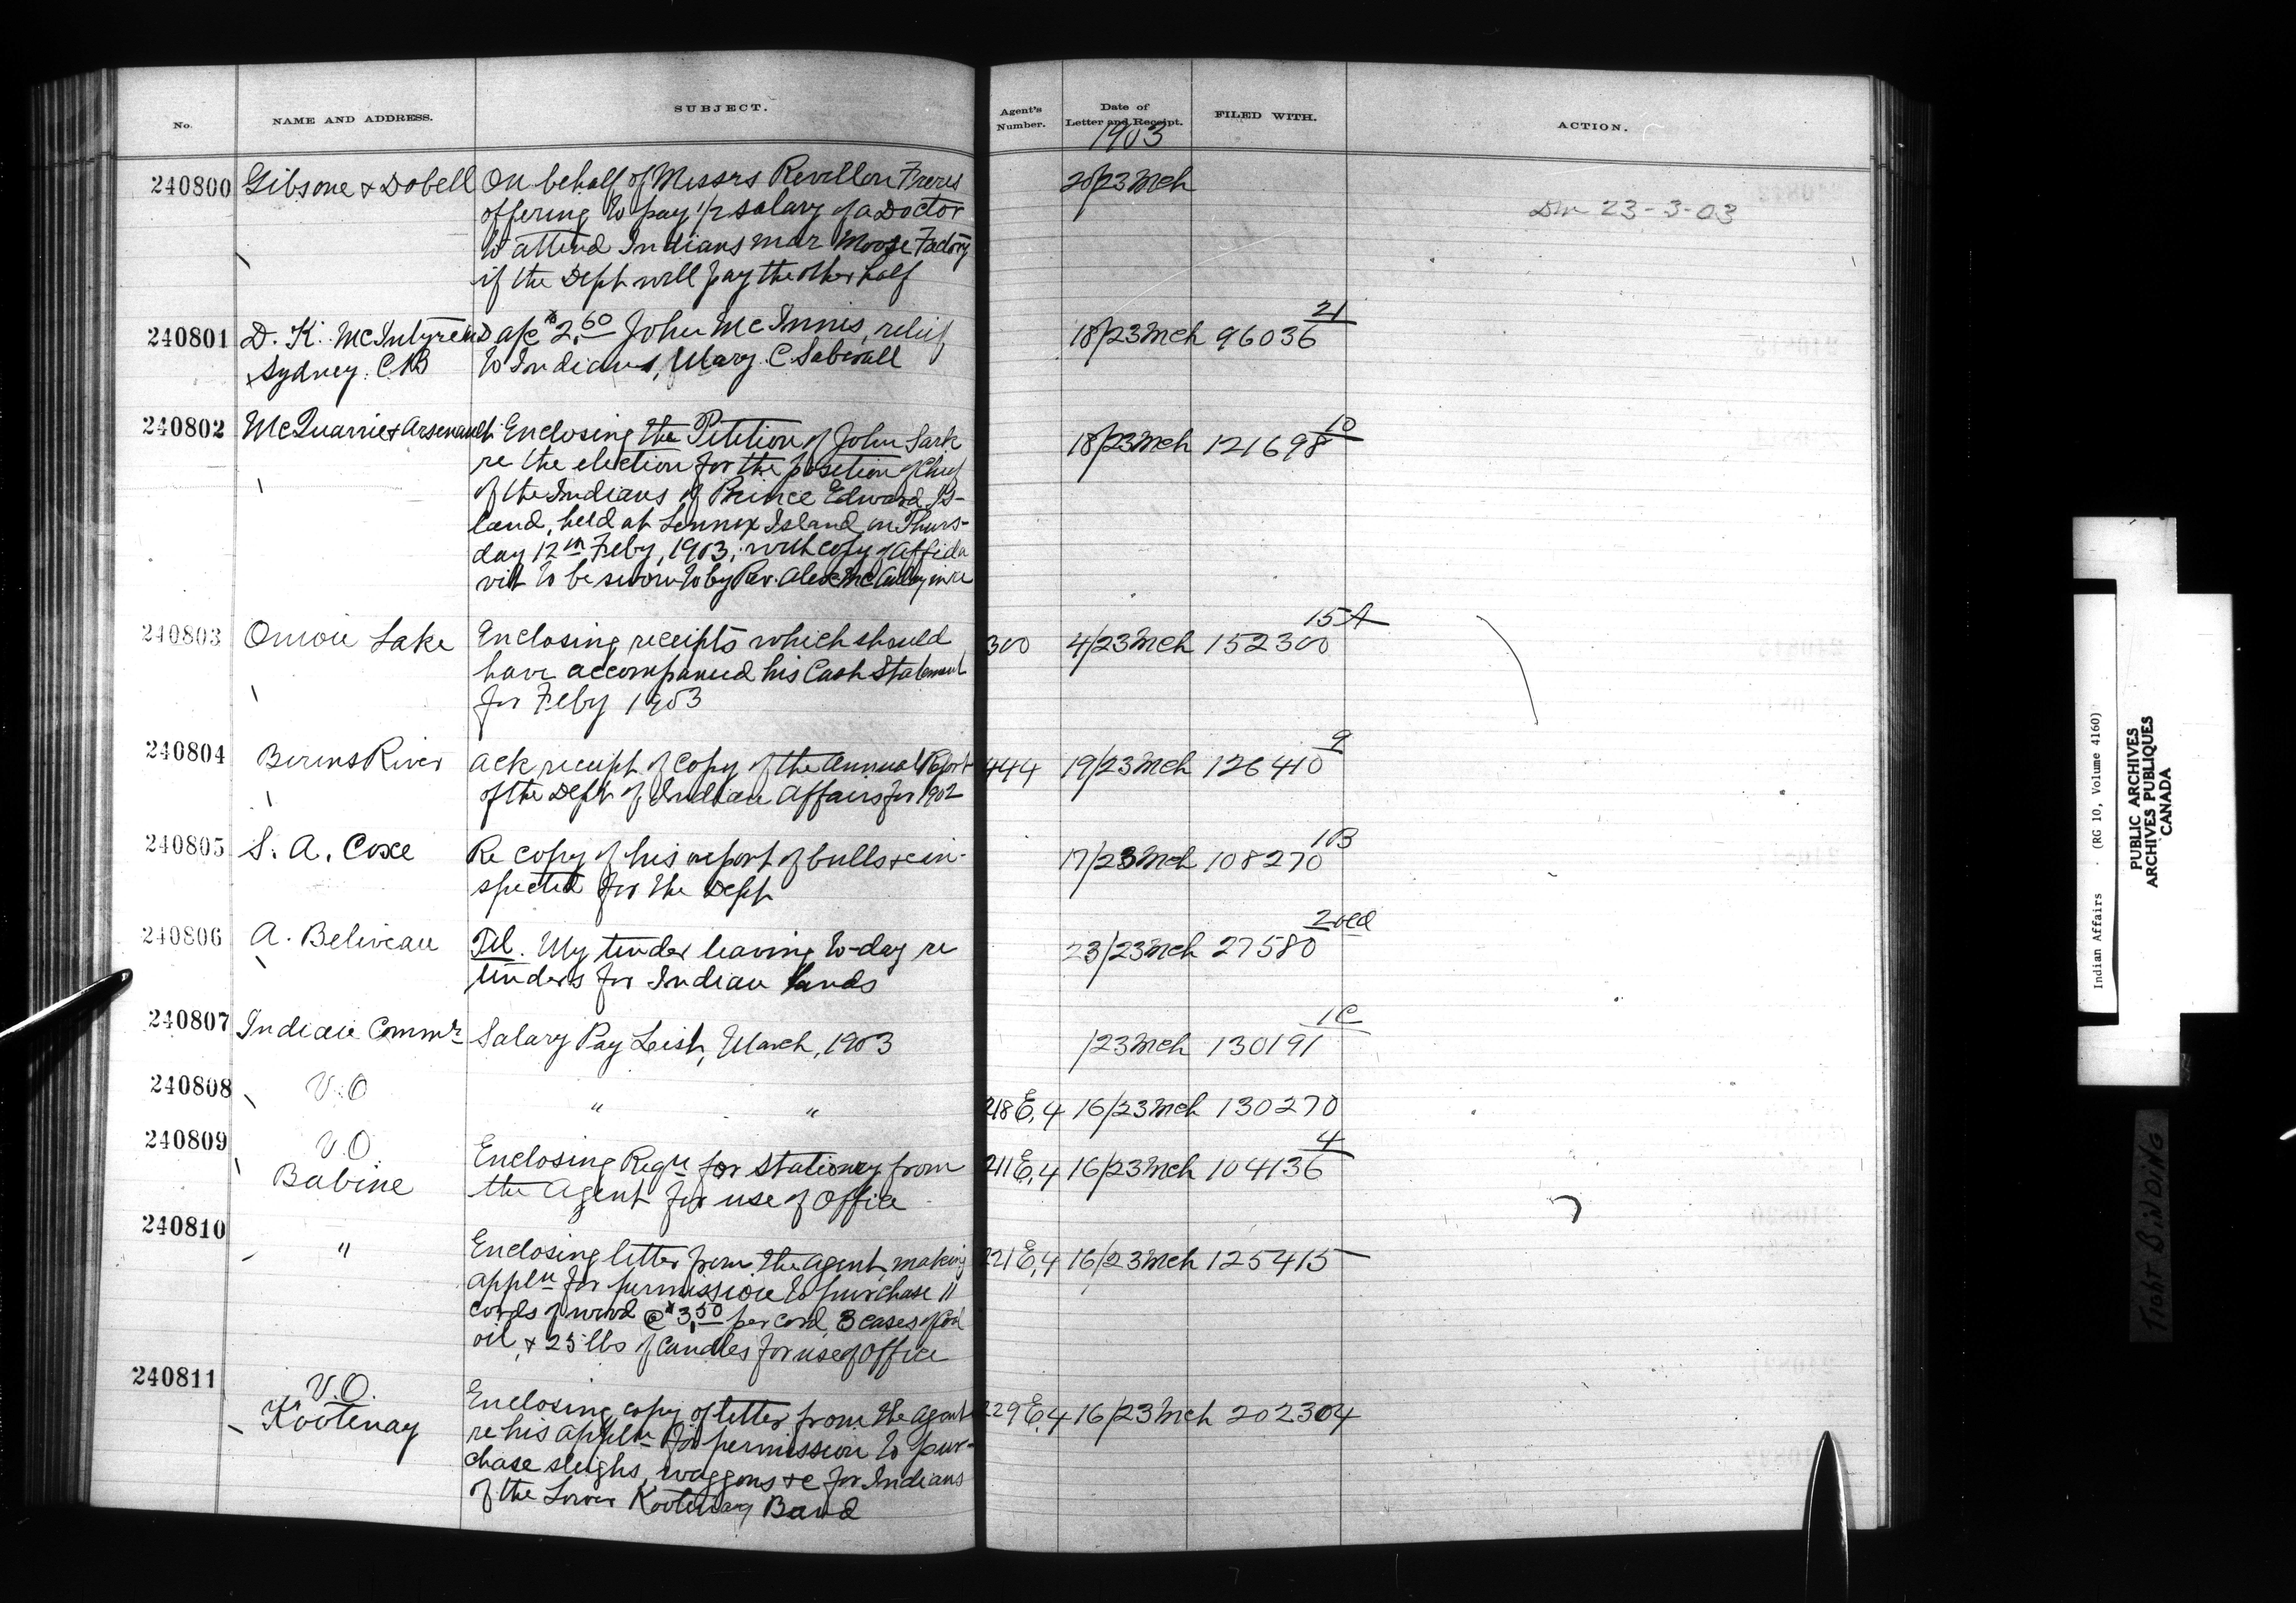 No.
NAME AND ADDRESS.
SUBJECT.
Agent's Number.
Date of Letter and Receipt.
FILED WITH.
ACTION.
1903
240800 Gibsone & Dobell On behalf of Messrs Revillon Freres 20/23 Mch
offering to pay 1/2 salary of a Doctor Dm 23-3-03
to attend Indians near Moose Factory
if the Dept will pay the other half
240801 D. K. McIntyre MD a/c $2.60 John McInnis, relief 18/23 Mch 96036 21
Sydney. CB to Indians, Mary C
240802 McQuarrie & Arsenault Enclosing the Petition of John Sark 18/23 Mch 121698 10
re the election for the position of Chief
of the Indians of Prince Edward Is-
land, held at Lennox Island on Thurs-
day 12th Feby, 1903, with copy of Affida
vit to be sworn to by Rev. Alex McAulay in re
240803 Onion Lake Enclosing receipts which should 300 4/23 Mch 152300 15A
have accompanied his Cash Statement
for Feby 1903
240804 Berens River Ack receipt of Copy of the Annual Report 444 19/23 Mch 126410 9
of the Dept of Indian Affairs for 1902
240805 S. A. Coxe Re copy of his report of bulls &c in- 17/23 Mch 108270 1B
spected for the Dept
240806 A. Beliveau Tel. My tender leaving to-day re 23/23 Mch 27580 2
tenders for Indian lands
240807 Indian Commr Salary Pay List, March, 1903 /23 Mch 130191 1C
240808 V.O " " 218 E,4 16/23 Mch 130270
240809 V.O. Enclosing Reqn for stationery from 211 E,4 16/23 Mch 104136 4
Babine the Agent for use of Office
240810 " Enclosing letter from the Agent, making 221 E,4 16/23 Mch 125415
appln for permission to purchase 11
cords of wood @ $3.50 per cord, 3 cases of Coal
oil, & 25 lbs of Candles for use of Office
240811 V.O. Enclosing copy of letter from the Agent 229 E,4 16/23 Mch 202304
Kootenay re his appln for permission to pur-
chase sleighs, waggons &c for Indians
of the Lower Kootenay Band
Indian Affairs (RG 10, Volume 4160)
PUBLIC ARCHIVES
ARCHIVES PUBLIQUES
CANADA
TIGHT BINDING